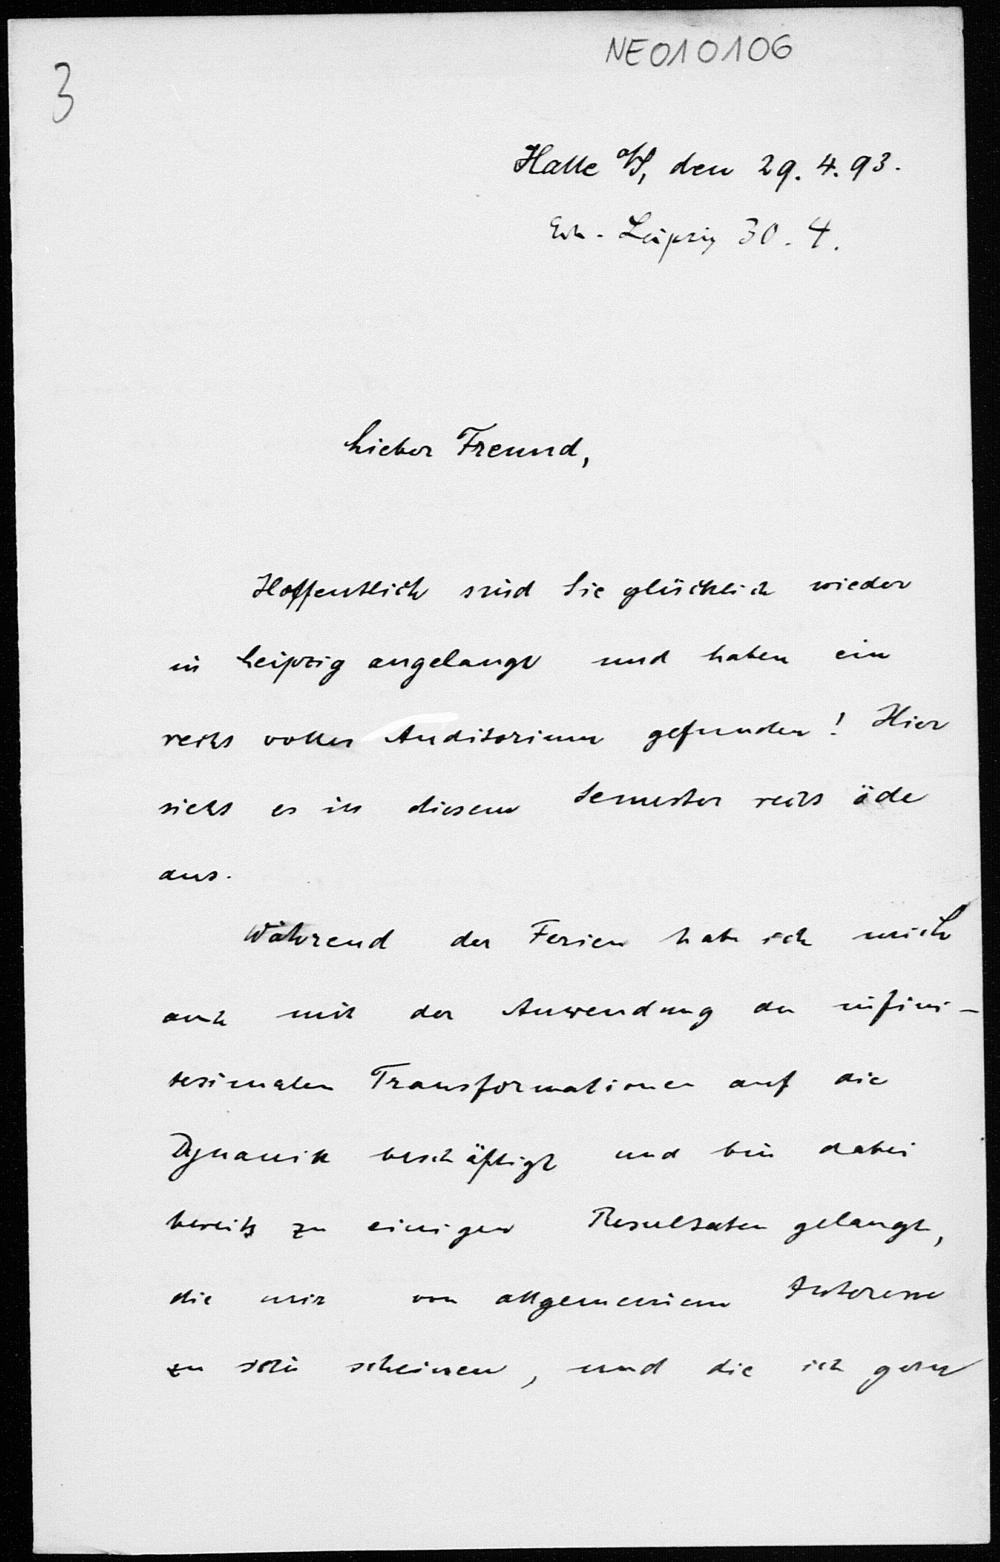 NE010106
3
Halle a/S, den 29. 4. 93.
Erh. Leipzig 30. 4.
Lieber Freund,
Hoffentlich sind Sie glücklich wieder
in Leipzig angelangt und haben ein
recht volles Auditorium gefunden! Hier
sieht es in diesem Semester recht öde
aus.
Während der Ferien habe ich mich
auch mit der Anwendung der infini-
tesimalen Transformationen auf die
Dynamik beschäftigt und bin dabei
bereits zu einigen Resultaten gelangt,
die mir von allgemeinem Interesse
zu sein scheinen, und die ich gern